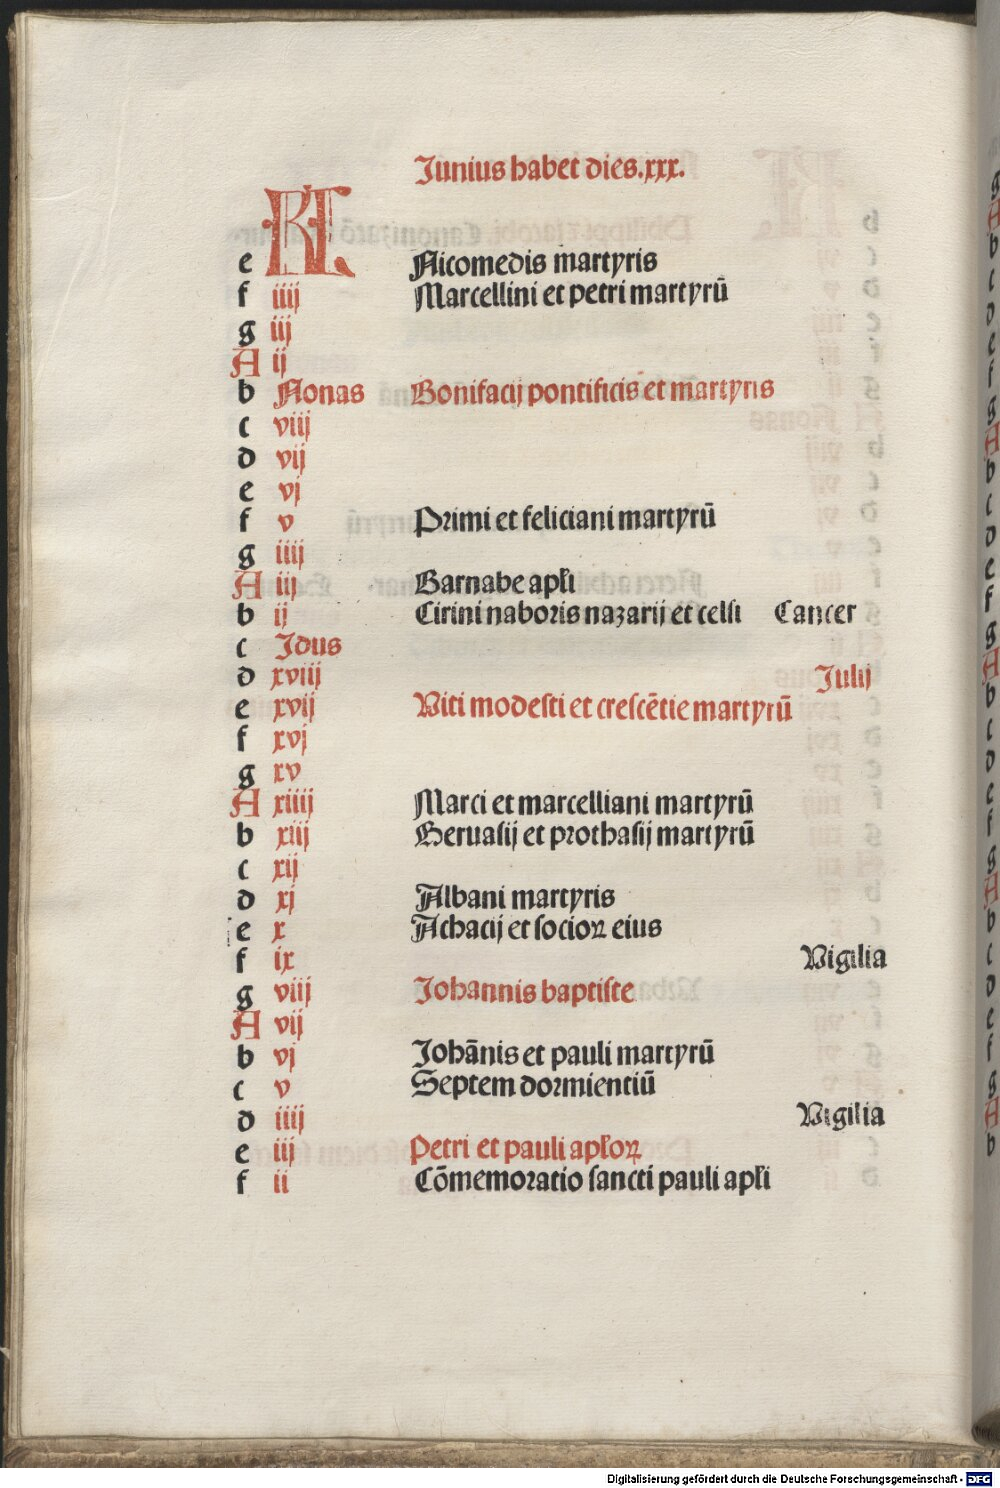 Junius habet dies.xxx.
KL
e Nicomedis martyris
f iiij Marcellini et petri martyrū
g iij
A ij
b Nonas Bonifacij pontificis et martyris
c viij
d vij
e vj
f v Primi et feliciani martyrū
g iiij
A iij Barnabe apłi
b ij Cirini naboris nazarij et celsi Cancer
c Idus
d xviij Julij
e xvij Viti modesti et crescētie martyrū
f xvj
g xv
A xiiij Marci et marcelliani martyrū
b xiij Geruasij et prothasij martyrū
c xij
d xj Albani martyris
e x Achacij et socioꝝ eius
f ix Vigilia
g viij Johannis baptiste
A vij
b vj Johānis et pauli martyrū
c v Septem dormientiū
d iiij Vigilia
e iij Petri et pauli apłoꝝ
f ii Cōmemoratio sancti pauli apłi
Digitalisierung gefördert durch die Deutsche Forschungsgemeinschaft - DFG